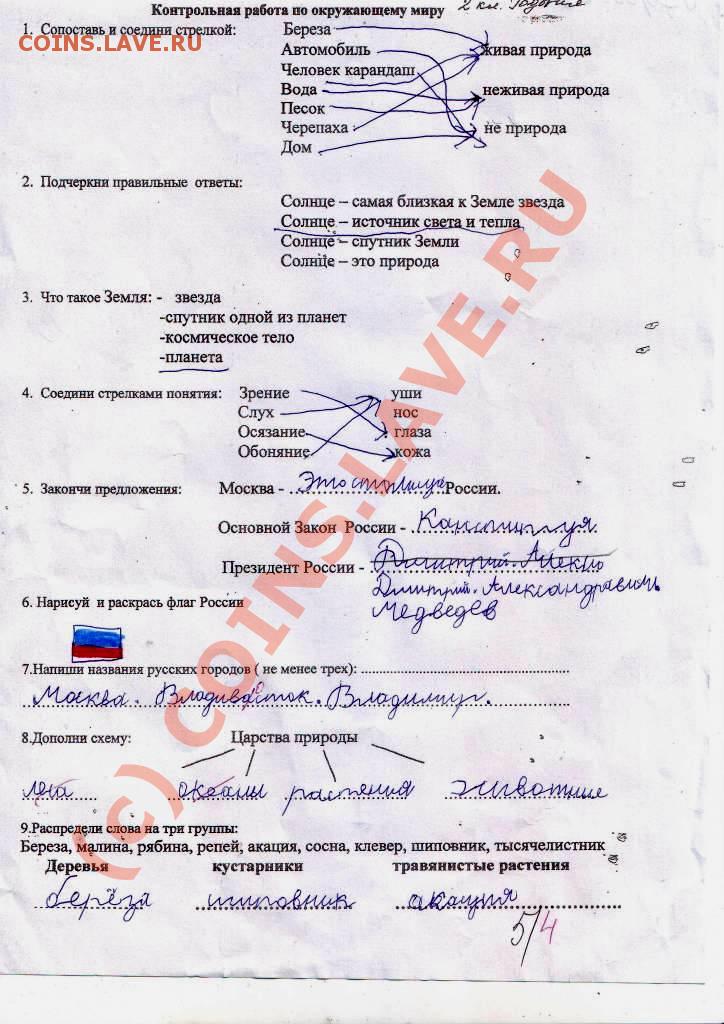 Контрольная работа по окружающему миру 2 кл. Годовые
COINS.LAVE.RU
1. Сопоставь и соедини стрелкой: Береза
Автомобиль живая природа
Человек карандаш
Вода неживая природа
Песок
Черепаха не природа
Дом
2. Подчеркни правильные ответы:
Солнце – самая близкая к Земле звезда
Солнце – источник света и тепла
Солнце – спутник Земли
Солнце – это природа
3. Что такое Земля: - звезда
-спутник одной из планет
-космическое тело
-планета
4. Соедини стрелками понятия: Зрение уши
Слух нос
Осязание глаза
Обоняние кожа
5. Закончи предложения: Москва - Это столица России.
Основной Закон России - Канституция
Президент России - Дмитрий. Алексо
Дмитрий. Александравичь
Медведев
6. Нарисуй и раскрась флаг России
7.Напиши названия русских городов ( не менее трех):
Москва. Владивасток. Владимир.
8.Дополни схему: Царства природы
океаны растения животные
9.Распредели слова на три группы:
Береза, малина, рябина, репей, акация, сосна, клевер, шиповник, тысячелистник
Деревья кустарники травянистые растения
берёза шиповник акация
5/4
(c) COINS.LAVE.RU